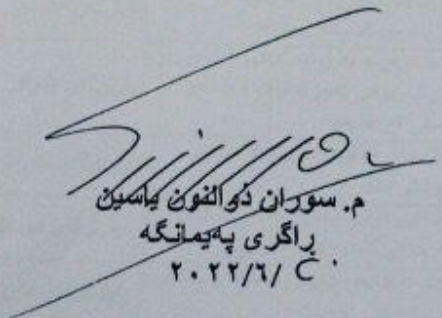 م. سوران ذوالنون یاسین
ڕاگری پەیمانگە
٢٠٢٢/٦/